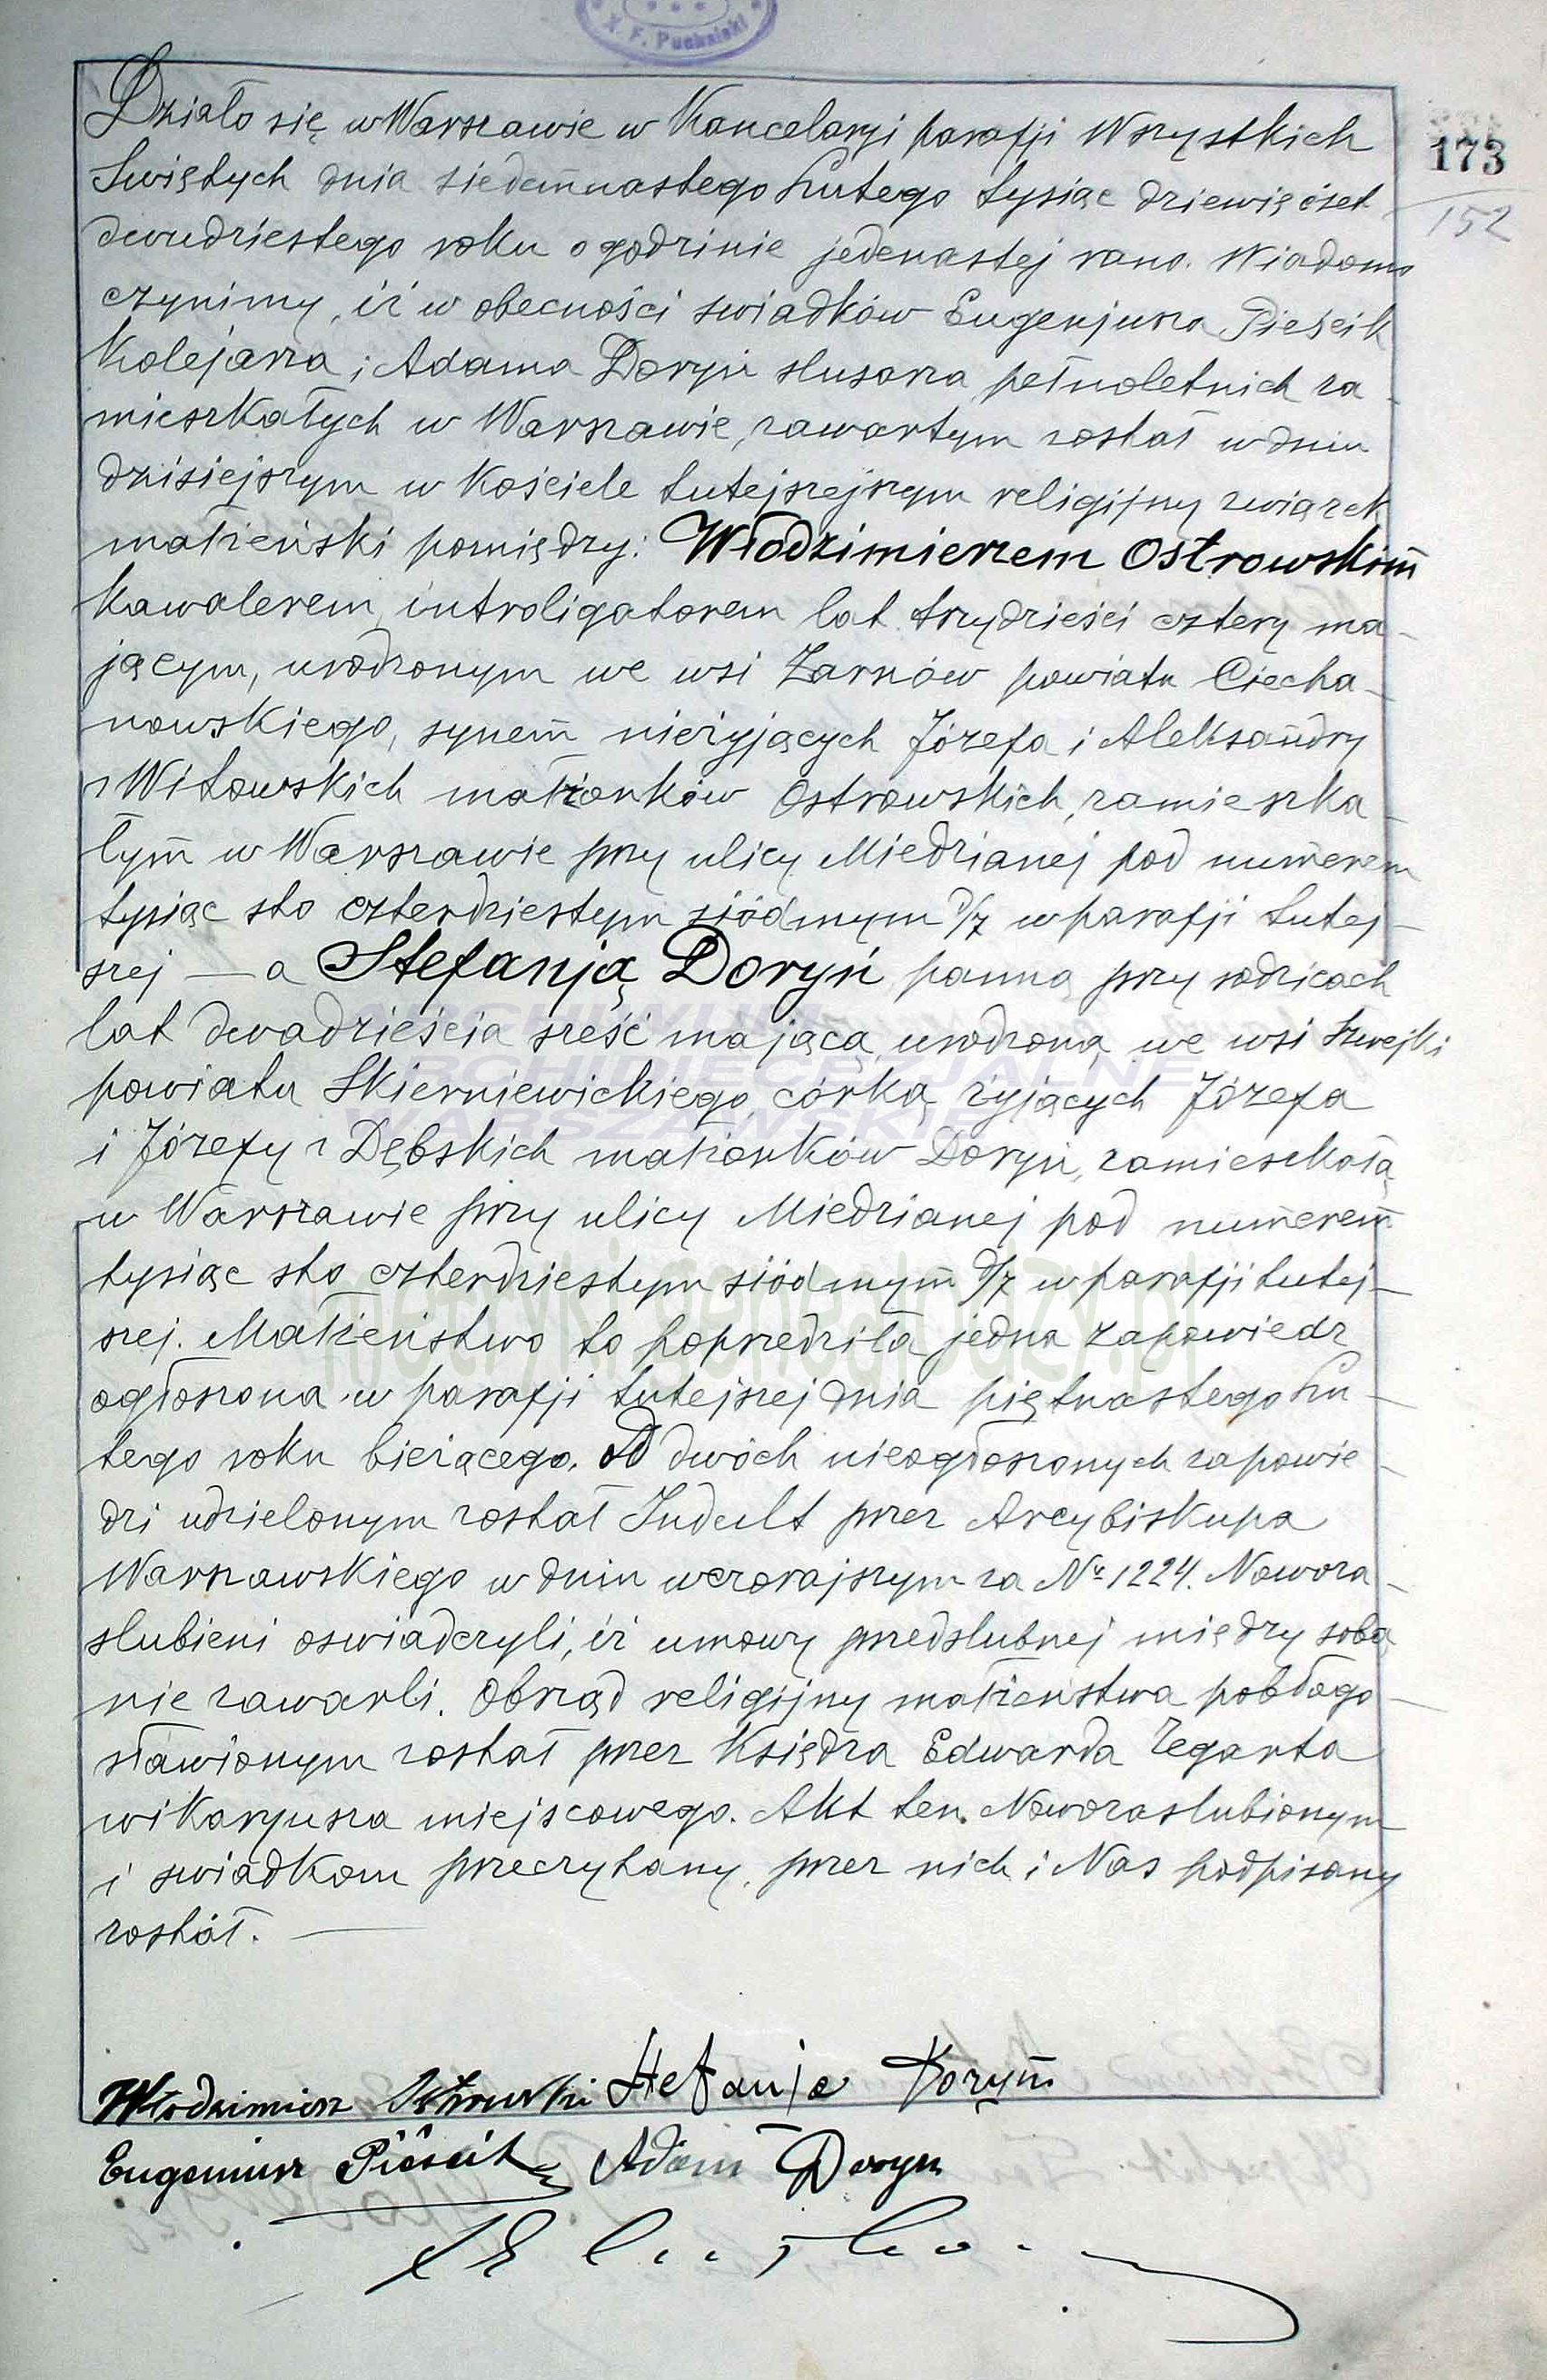 X. F. Puchalski
Działo się w Warszawie w Kancelaryi parafji Wszystkich
173
Świętych dnia siedemnastego Lutego tysiąc dziewięćset
152
dwudziestego roku o godzinie jedenastej rano. Wiadomo
czynimy, iż w obecności swiadków Eugenjusza Pieścik
Kolejarza i Adama Doryń slusarza pełnoletnich za-
mieszkałych w Warszawie, zawartym został w dniu
dzisiejszym w Kościele tutejszejszym religijny związek
małżeński pomiędzy: Włodzimierzem Ostrowskim
Kawalerem, introligatorem lat trzydzieści cztery ma-
jącym, urodzonym we wsi powiatu Ciecha-
nowskiego, synem nieżyjących Józefa i Aleksandry
z Witowskich małżonków Ostrowskich, zamieszka-
łym w Warszawie przy ulicy Miedzianej pod numerem
tysiąc sto czterdziestym siódmym w parafji tutej-
szej — a Stefanją Doryń panną przy rodzicach
lat dwadzieścia sześć mającą, urodzoną we wsi Szwejki
powiatu Skierniewickiego, córką żyjących Józefa
i Józefy z Dębskich małżonków Doryń, zamieszkałą
w Warszawie przy ulicy Miedzianej pod numerem
tysiąc sto czterdziestym siódmym w parafji tutej-
szej. Małżeństwo to poprzedziła jedna zapowiedz
ogłoszona w parafji tutejszej dnia piętnastego Lu-
tego roku bieżącego. Od dwóch nieogłoszonych zapowie-
dzi udzielonym został Indult przez Arcybiskupa
Warszawskiego w dniu wczorajszym za № 1224. Nowoza-
slubieni oswiadczyli, iż umowy przedslubnej między sobą
nie zawarli. Obrząd religijny małżeństwa pobłogo-
sławionym został przez Księdza Edwarda Żegarta
wikaryusza miejscowego. Akt ten Nowozaslubionym
i swiadkom przeczytany, przez nich i Nas podpisany
został. —
Włodzimierz Ostrowski Stefanja Doryń
Eugeniusz Pieścik Adam Doryn
ARCHIWUM
ARCHIDIECEZJALNE
WARSZAWSKIE
metryki.genealodzy.pl